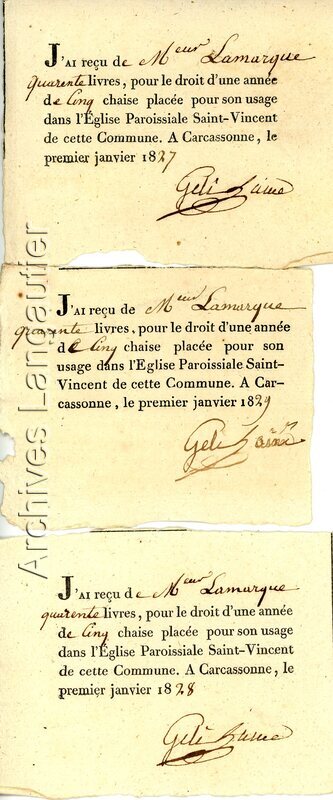 J'AI reçu de Meur Lamarque
quarente livres, pour le droit d'une année
de Cinq chaise placée pour son usage
dans l'Église Paroissiale Saint-Vincent
de cette Commune. A Carcassonne, le
premier janvier 1827
Geli Lainé
J'AI reçu de Meur Lamarque
quarente livres, pour le droit d'une année
de Cinq chaise placée pour son
usage dans l'Église Paroissiale Saint-
Vincent de cette Commune. A Car-
cassonne, le premier janvier 1829
Geli
J'AI reçu de Meur Lamarque
quarente livres, pour le droit d'une année
de Cinq chaise placée pour son usage
dans l'Église Paroissiale Saint-Vincent
de cette Commune. A Carcassonne, le
premier janvier 1828
Geli Lainé
Archives Langautier